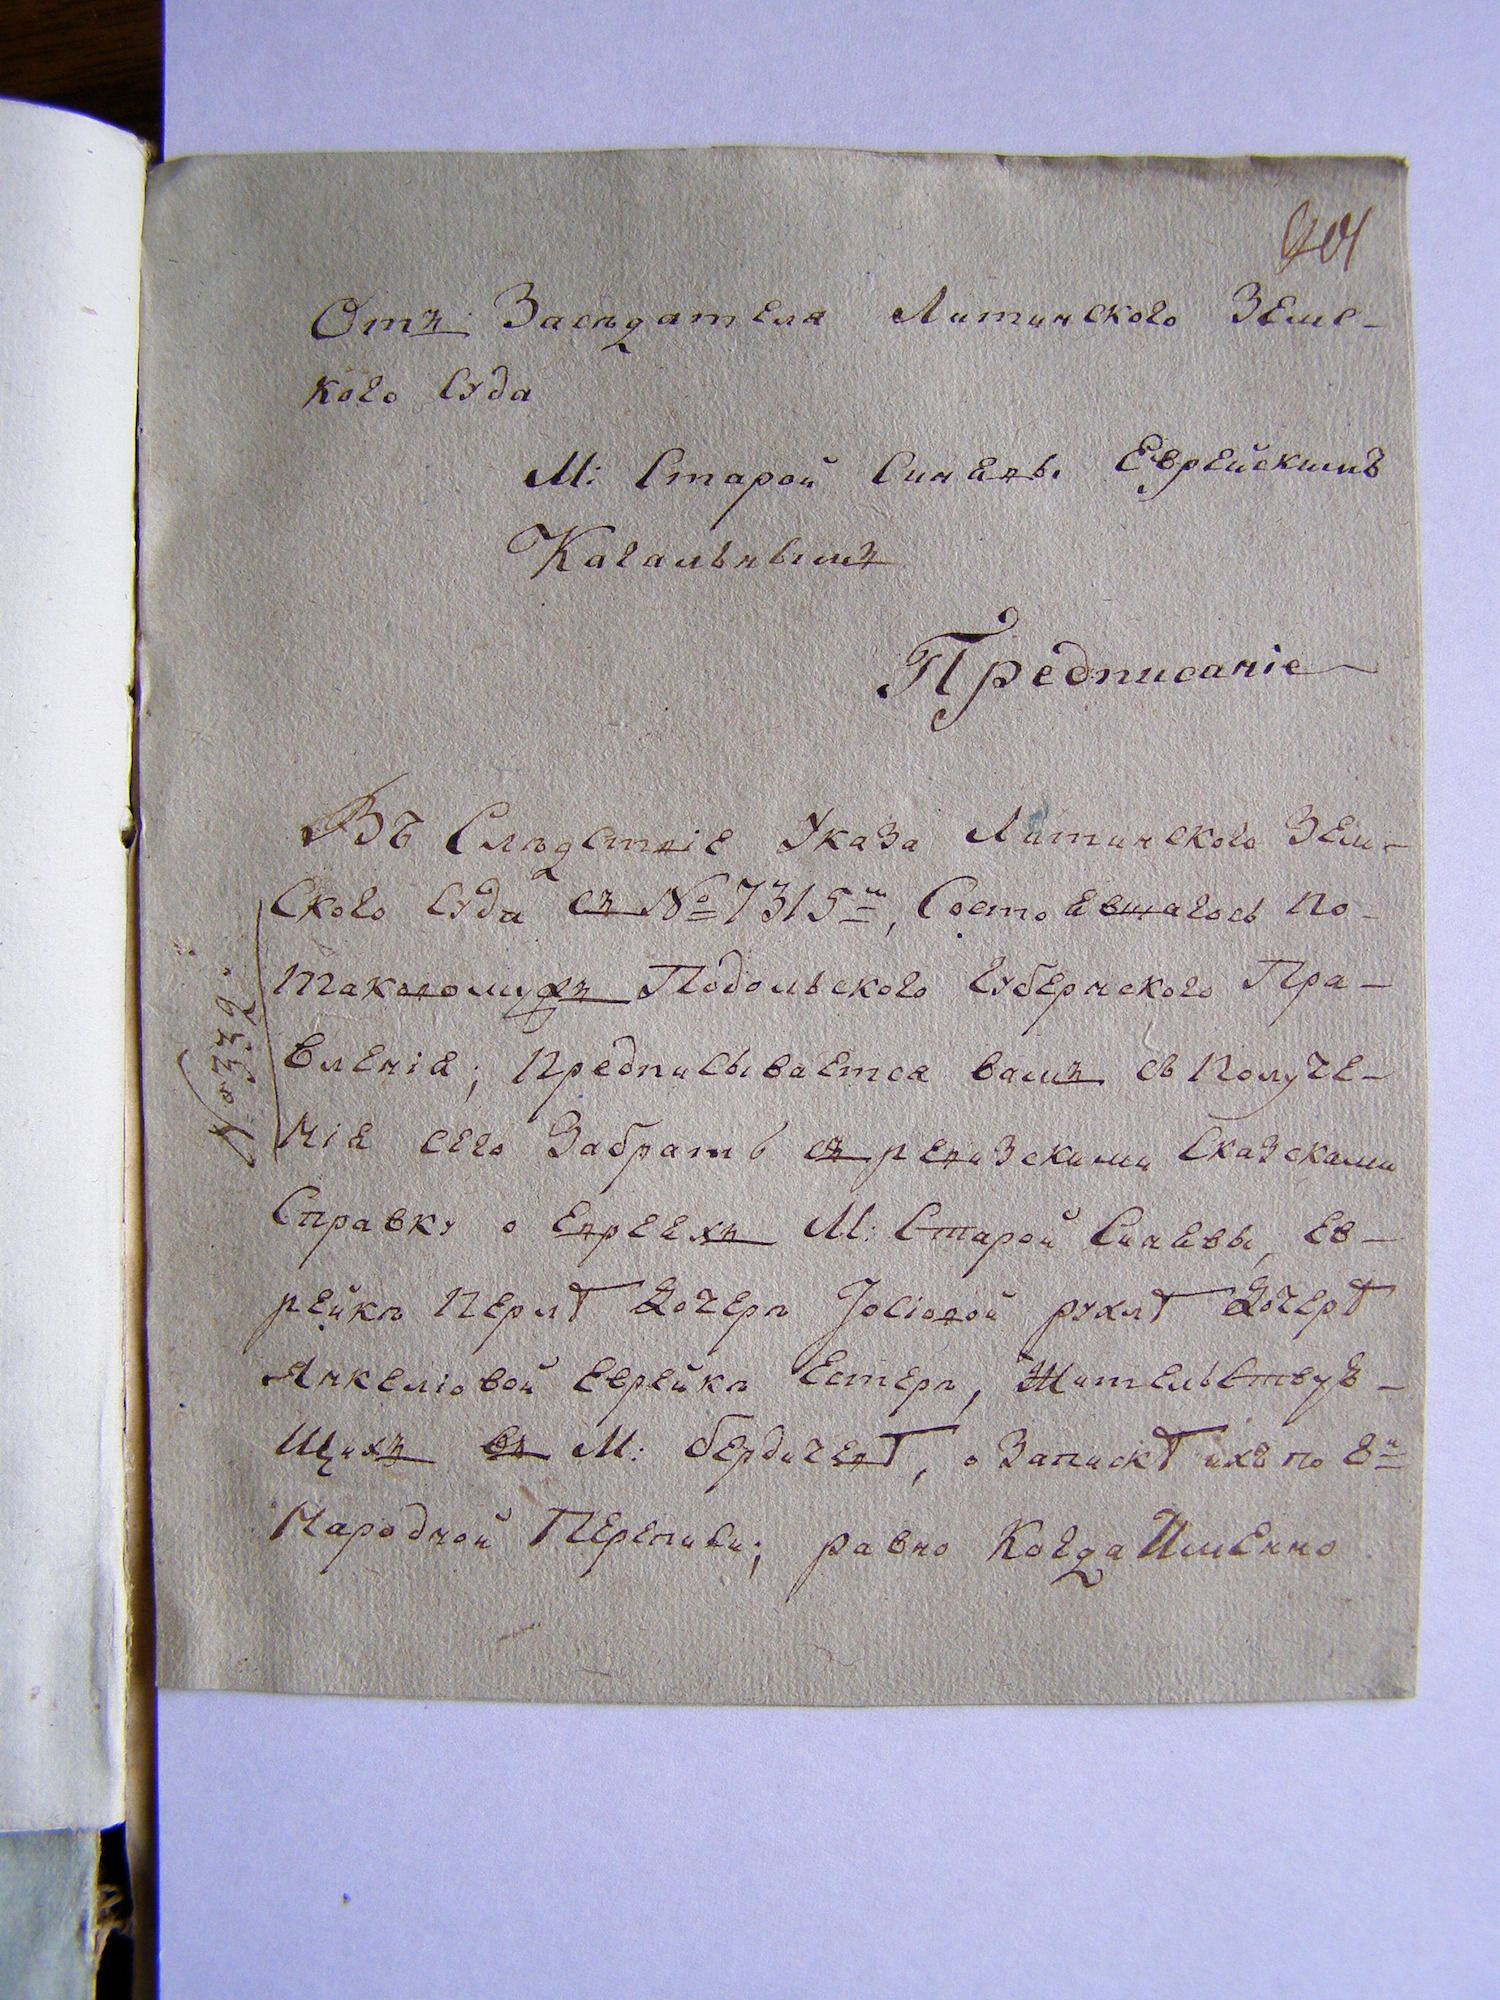 Отъ Засѣдателя Литинского Земс-
кого Суда
М: Старой Синявы Еврейскимъ
Кагальнымъ
Предписаніе
Въ Слѣдствіе Указа Литинского Зем-
Ского Суда съ № 7315м, Состоявшагось По-
таковомужъ Подольского Губернского Пра-
вленія; Предписывается вамъ съ Получе-
нія сего Забрать съ ревизскими Сказками
Справку о Евреехъ М: Старой Синявы, Ев-
рейкѣ Перлѣ Дочерѣ Іосіовой рухлѣ Дочерѣ
Янкеліовой Еврейкѣ Естерѣ, Жительству-
Щихъ въ М: бердичевѣ, о Запискѣ ихъ по 8й
Народной Переписи; равно Когда Именно
№ 332